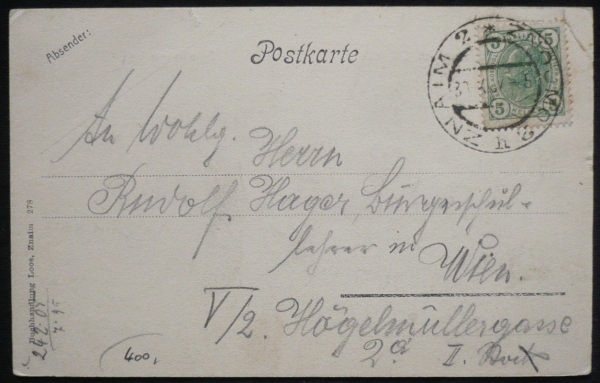 Absender:
Postkarte
ZNAIM 2 * ZNOJMO 2
5 5
5
An Wohlg. Herrn
Rudolf Hager, Bürgerschul-
lehrer in
Wien.
V/2. Högelmüllergasse
2a II. Stock
Buchhandlung Loos, Znaim 278
400,